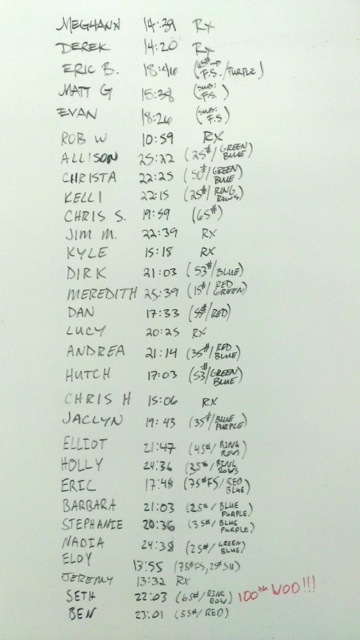 MEGHANN 14:39 RX
DEREK 14:20 RX
ERIC B. 18:46 (65# F.S. /PURPLE)
MATT G 15:38 (SUB: F.S.)
EVAN 18:26 (SUB: F.S)
ROB W 10:59 RX
ALLISON 25:22 (25#/GREEN BLUE)
CHRISTA 22:25 (50#/GREEN BLUE)
KELLI 22:15 (25#/RING ROWS)
CHRIS S. 19:59 (65#)
JIM M. 22:39 RX
KYLE 15:15 RX
DIRK 21:03 (53#/BLUE)
MEREDITH 25:39 (15#/RED GREEN)
DAN 17:33 (/RED)
LUCY 20:25 RX
ANDREA 21:14 (35#/RED BLUE)
HUTCH 17:03 (53/GREEN BLUE)
CHRIS H 15:06 RX
JACLYN 19:43 (35#/BLUE PURPLE)
ELLIOT 21:47 (45#/RING ROWS)
HOLLY 24:36 (35#/RING ROWS
ERIC 17:48 (75#FS/RED BLUE)
BARBARA 21:03 (25#/BLUE PURPLE)
STEPHANIE 20:36 (35#/BLUE PURPLE)
NADIA 24:38 (25#/GREEN BLUE)
ELOY 13:55 (75#FS, 25#)
JEREMY 13:32 RX
SETH 22:03 (65#/RING ROW) 100TH WOD!!!
BEN 23:01 (55#/RED)